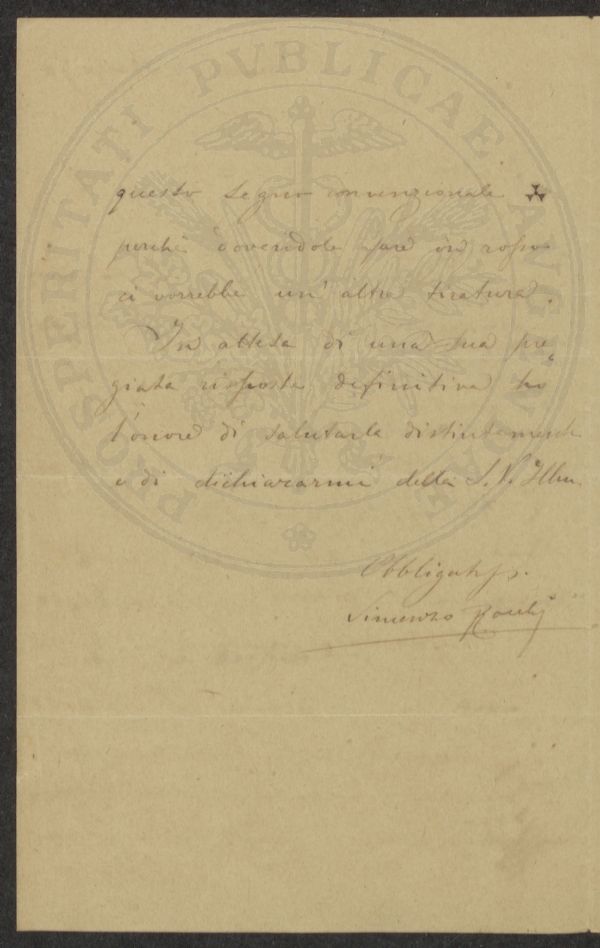 PROSPERITATI PVBLICAE AVGENDAE
questo segno convenzionale
perchè dovendole fare in rosso
ci vorrebbe un' altra tiratura.
In attesa di una sua pre„
giata risposta definitiva ho
l'onore di salutarla distintamente
e di dichiararmi della S. V. Illm.
Obbligatss.
Vincenzo